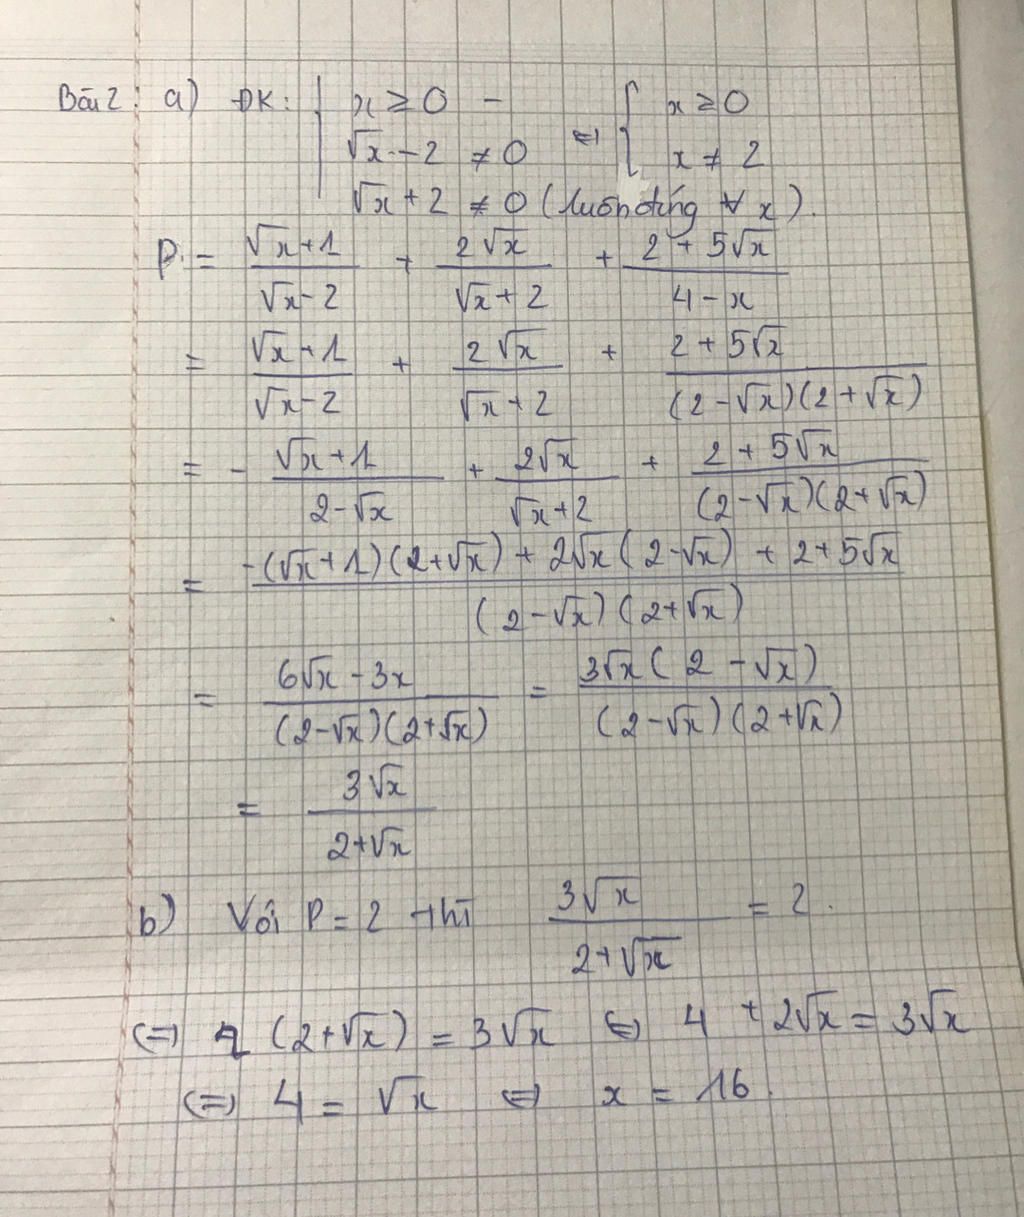 Bài 2: a) ĐK: { x ≥ 0 – ⇔ { x ≥ 0
√x - 2 ≠ 0 x ≠ 2
√x + 2 ≠ 0 (luôn đúng ∀ x).
P = (√x+1)/(√x-2) + (2√x)/(√x+2) + (2+5√x)/(4-x)
= (√x+1)/(√x-2) + (2√x)/(√x+2) + (2+5√x)/((2-√x)(2+√x))
= - (√x+1)/(2-√x) + (2√x)/(√x+2) + (2+5√x)/((2-√x)(2+√x))
= (-(√x+1)(2+√x) + 2√x(2-√x) + 2+5√x)/((2-√x)(2+√x))
= (6√x-3x)/((2-√x)(2+√x)) = (3√x(2-√x))/((2-√x)(2+√x))
= (3√x)/(2+√x)
b) Với P = 2 thì (3√x)/(2+√x) = 2.
⇔ 2(2+√x) = 3√x ⇔ 4 + 2√x = 3√x
⇔ 4 = √x ⇔ x = 16.